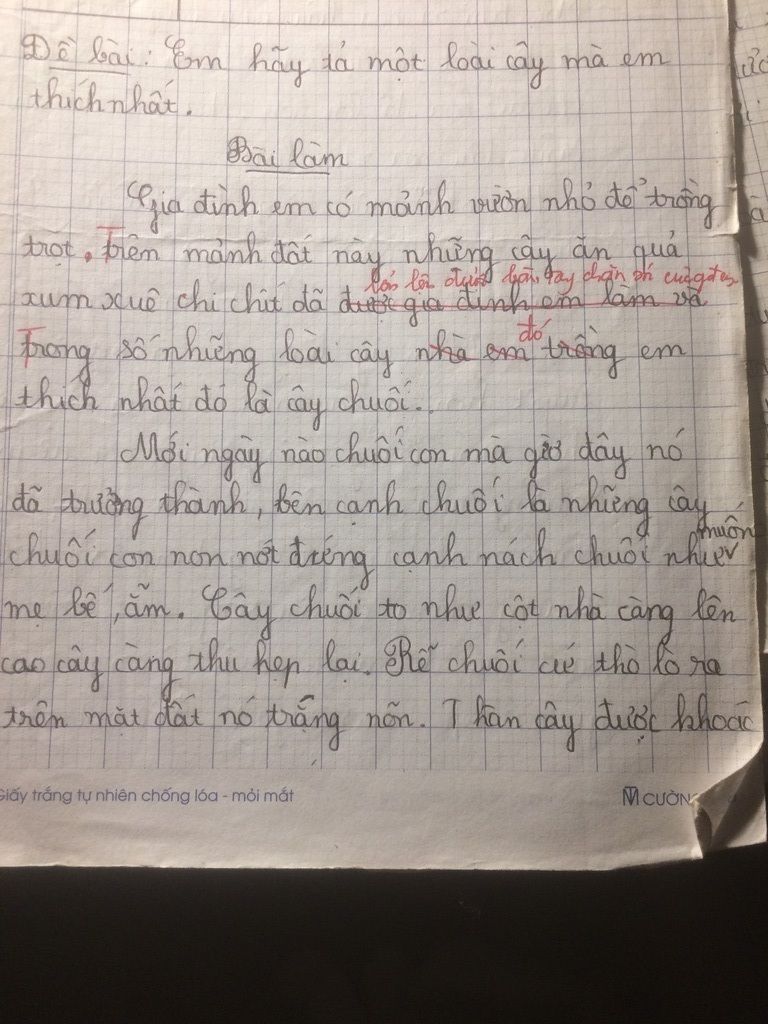 Đề bài: Em hãy tả một loài cây mà em
thích nhất.
Bài làm
Gia đình em có mảnh vườn nhỏ để trồng
trọt. Trên mảnh đất này những cây ăn quả
lớn lên dưới bàn tay chăm
xum xuê chi chít đã được gia đình em làm và
đó
Trong số những loài cây nhà em trồng em
thích nhất đó là cây chuối..
Mới ngày nào chuối con mà giờ đây nó
đã trưởng thành, bên cạnh chuối là những cây
muốn
chuối con non nớt đứng cạnh nách chuối như
mẹ bế, ẵm. Cây chuối to như cột nhà càng lên
cao cây càng thu hẹp lại. Rễ chuối cứ thò lò ra
trên mặt đất nó trắng nõn. Thân cây được khoác
Giấy trắng tự nhiên chống lóa - mỏi mắt
CƯỜN